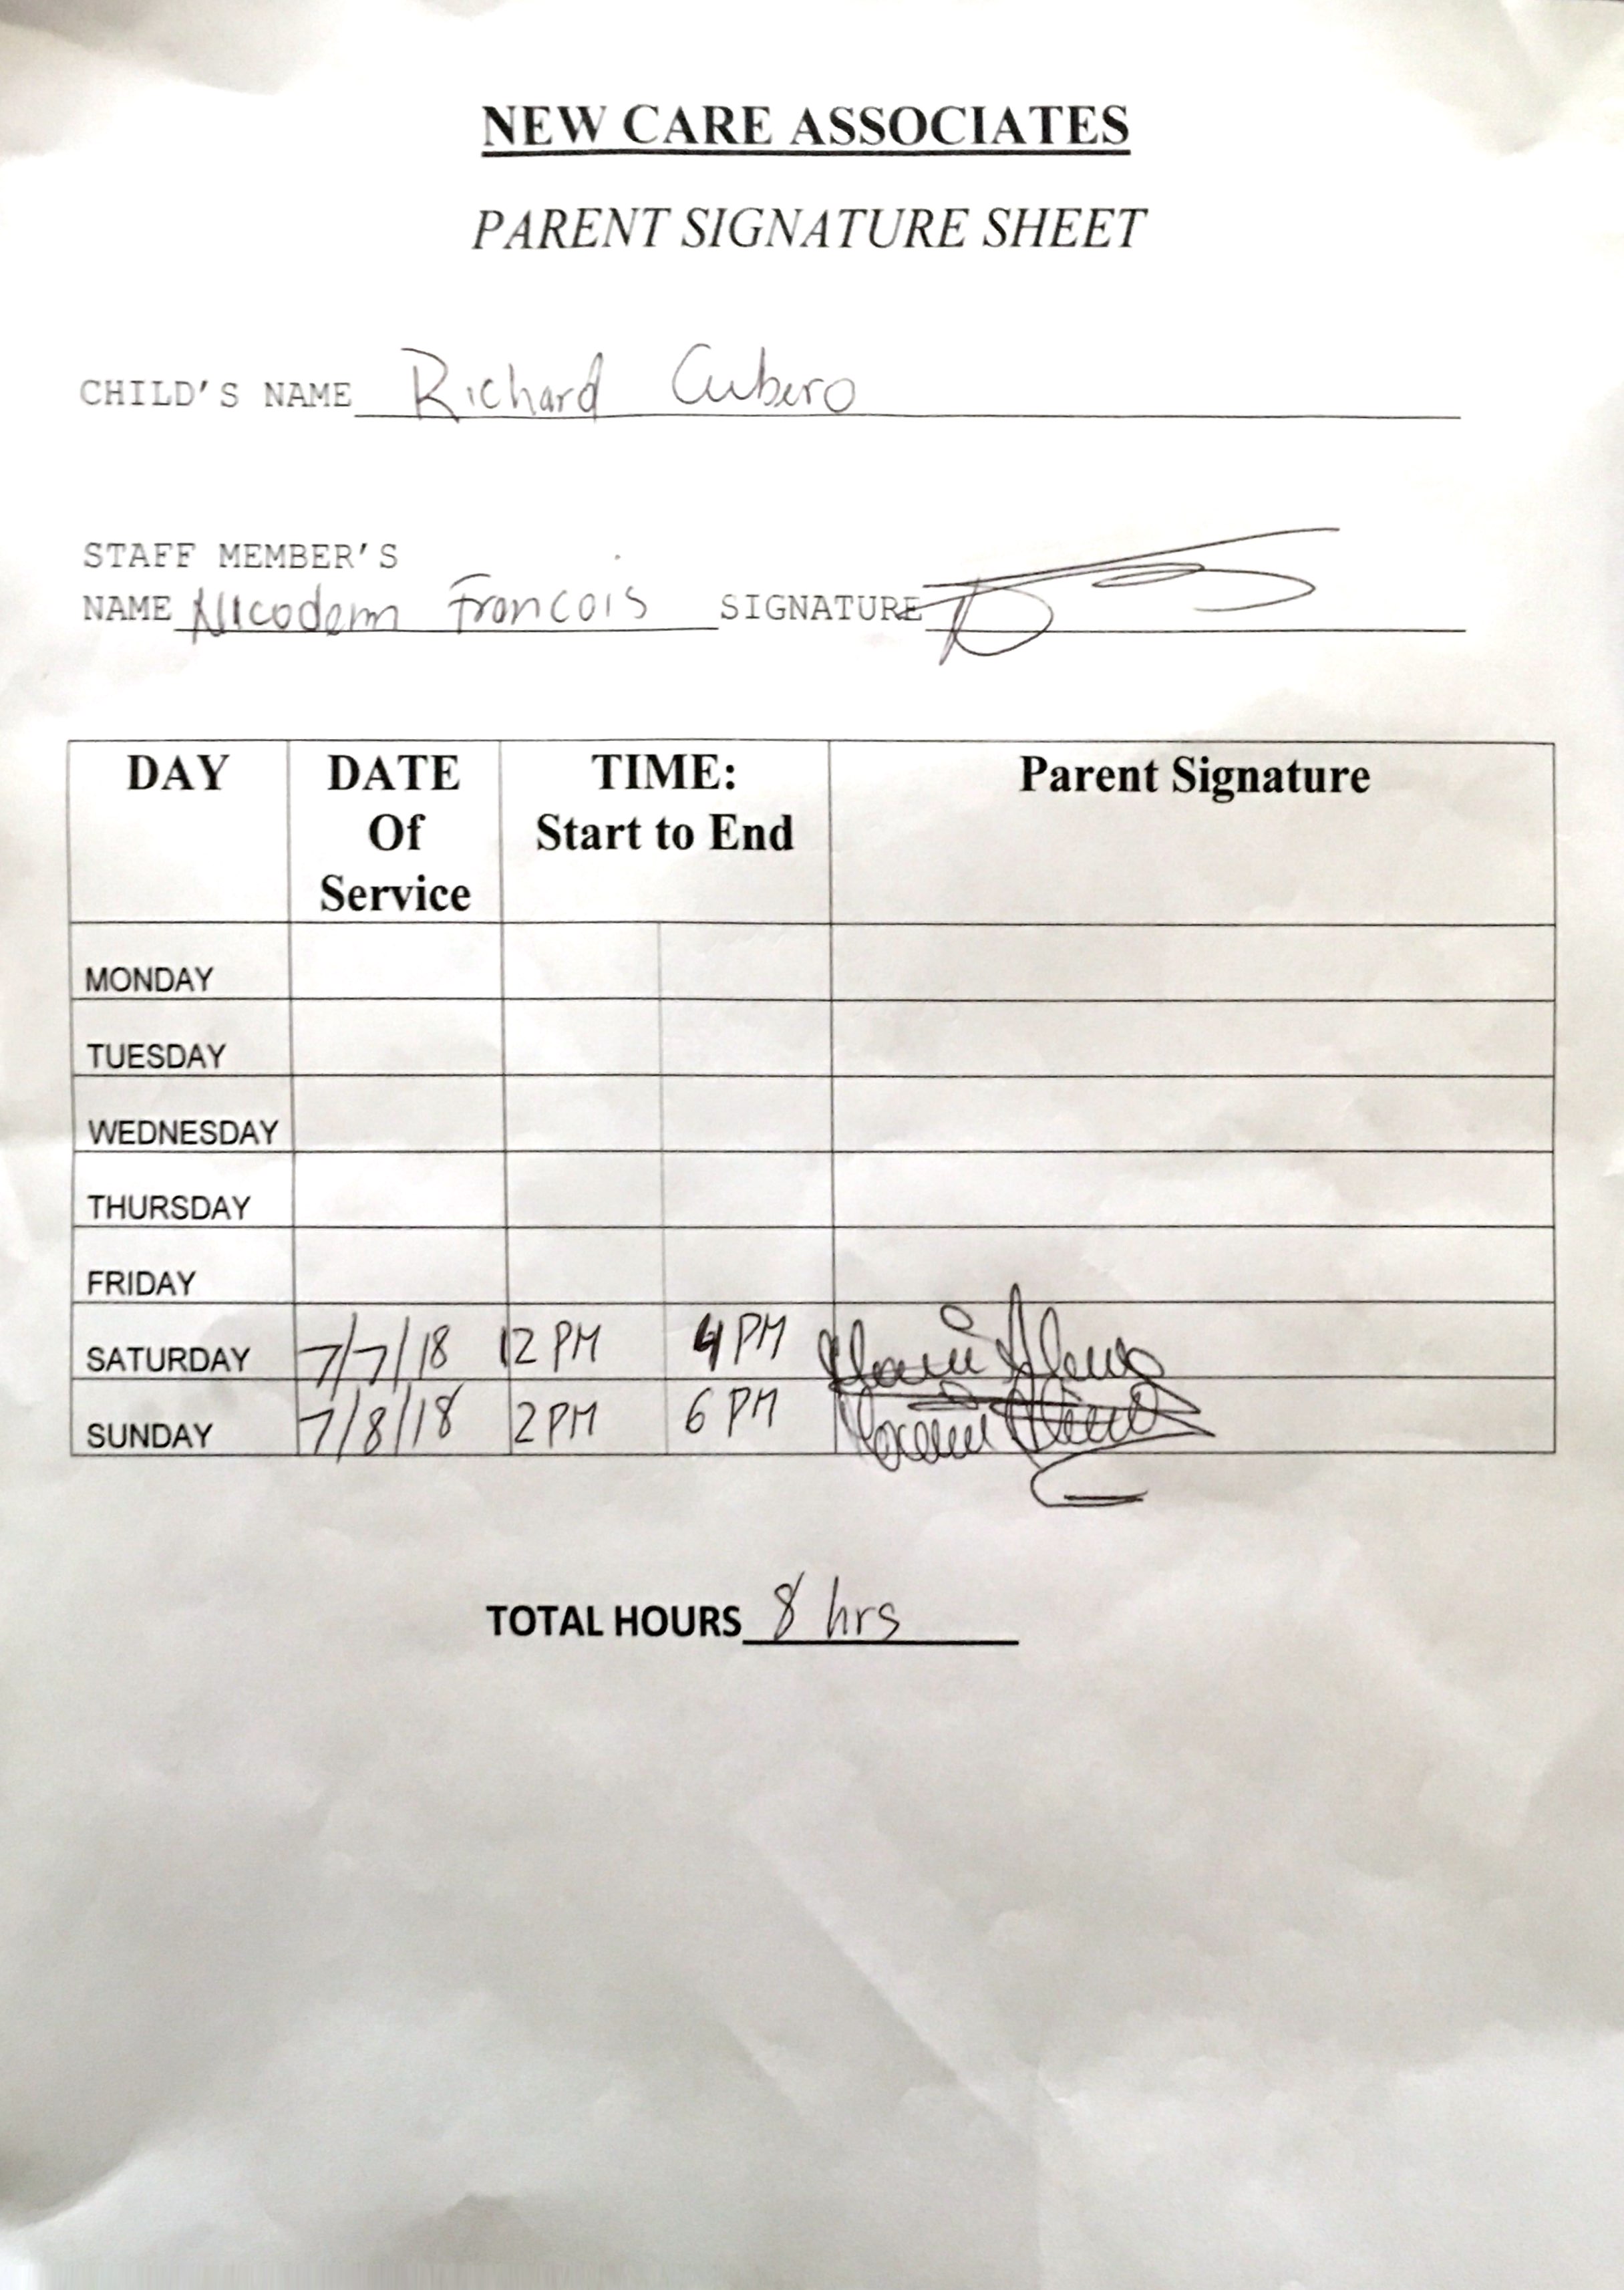 NEW CARE ASSOCIATES
PARENT SIGNATURE SHEET
CHILD'S NAME Richard Cubero
STAFF MEMBER'S
NAME Nicodem Francois SIGNATURE
DAY DATE Of Service TIME: Start to End Parent Signature
MONDAY
TUESDAY
WEDNESDAY
THURSDAY
FRIDAY
SATURDAY 7/7/18 12 PM 4 PM
SUNDAY 7/8/18 2 PM 6 PM
TOTAL HOURS 8 hrs